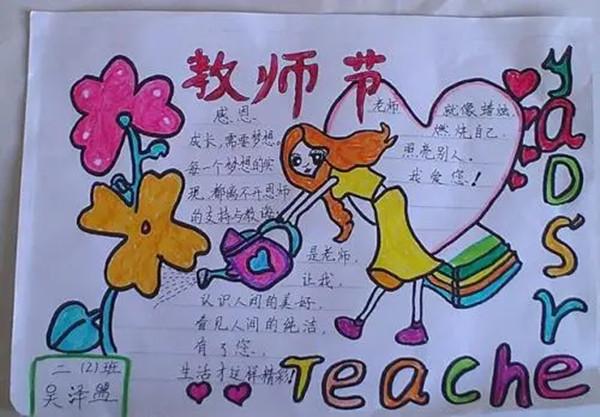 教师节
感恩
成长,需要梦想。
每一个梦想的实
现,都离不开恩师
的支持与教诲。
老师 就像蜡烛,
燃烧自己,
照亮别人。
我爱您!
是老师,
让我,
认识人间的美好,
看见人间的纯洁,
有了您,
生活才这样精彩!
二(2)班
吴泽
Teache
r'sDay